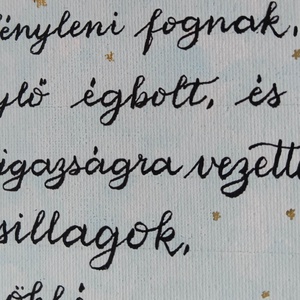 ényleni fognak,
ylő égbolt, és
igazságra vezette
sillagok,